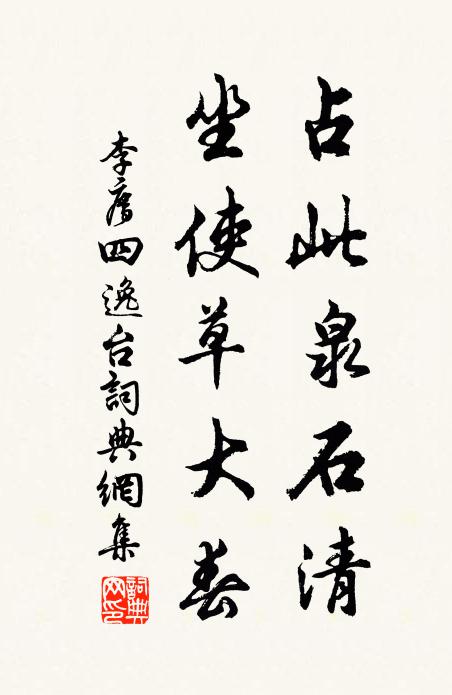 占此泉石清
坐使草大春
李廌四逸台詞典網集
詞典網印